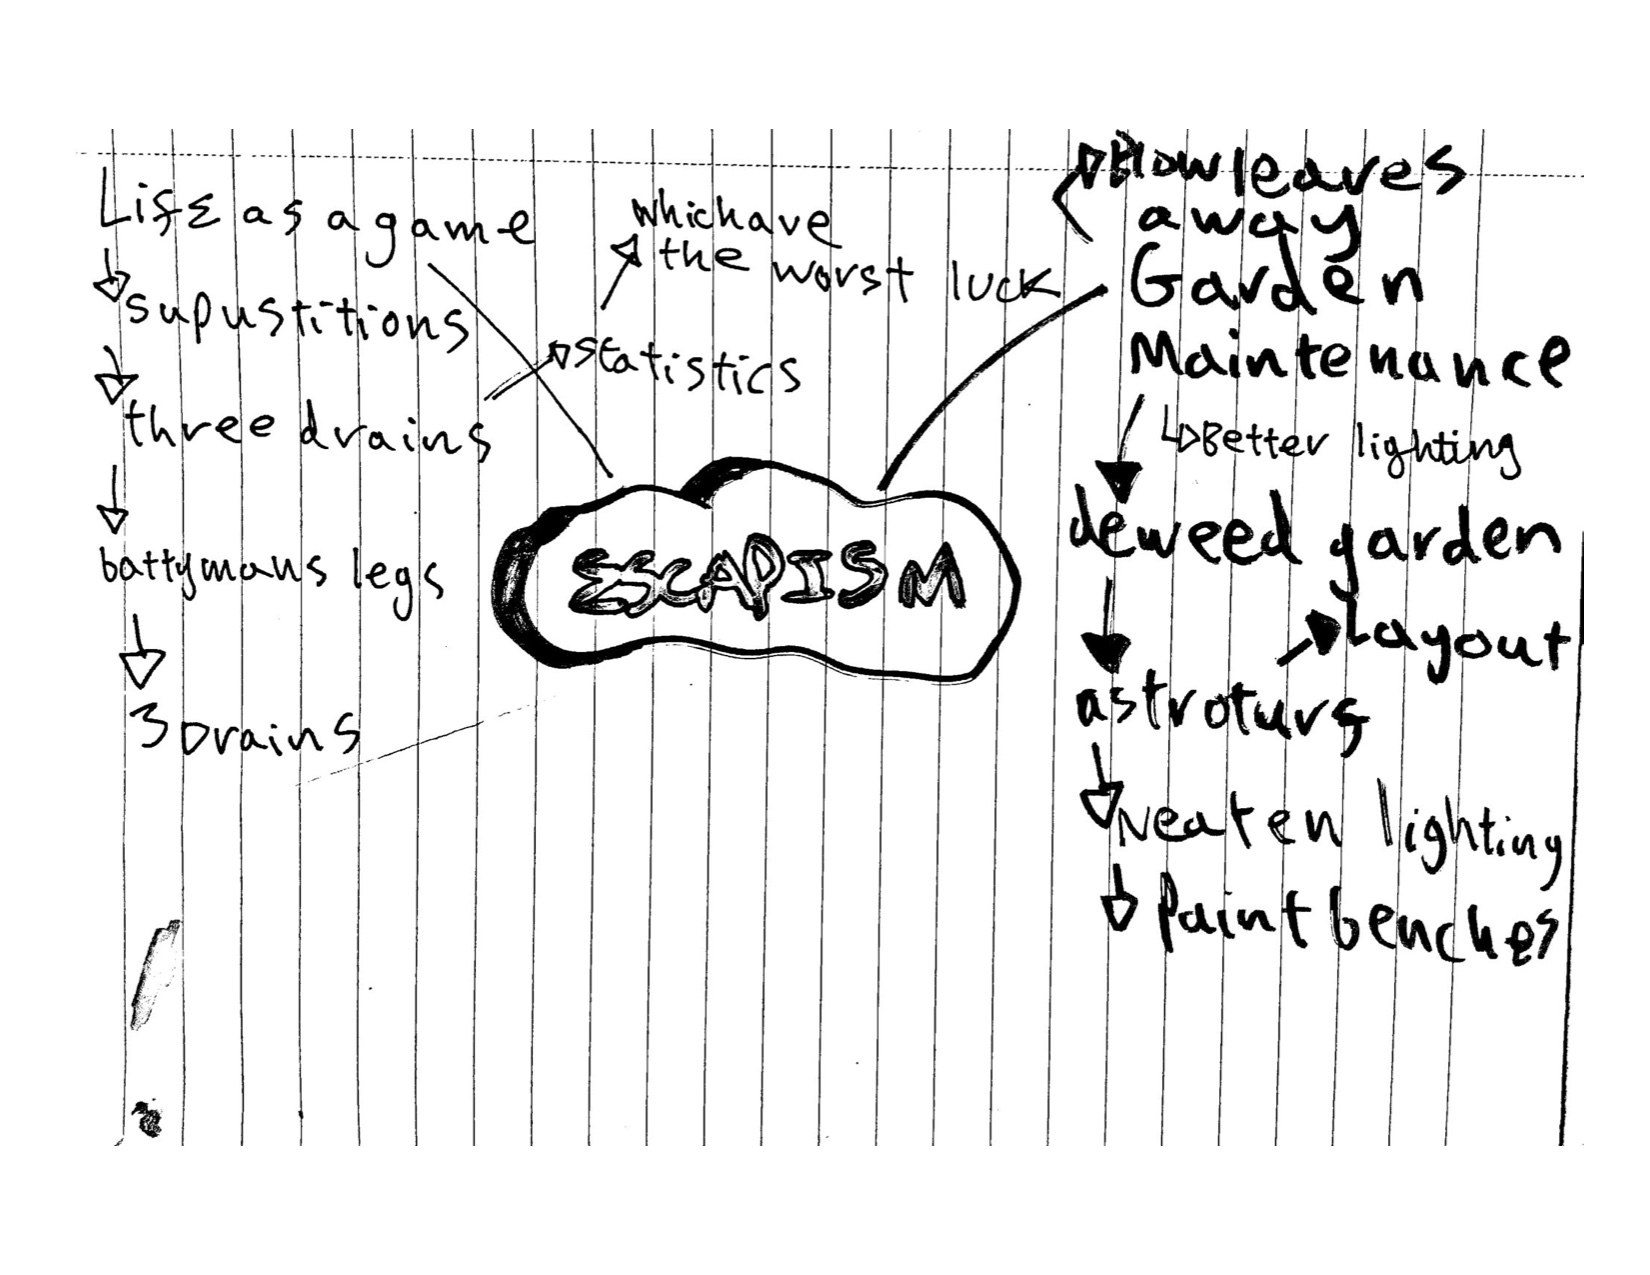 Life as a game
supustitions
three drains
battymans legs
3 Drains
statistics
which have
the worst luck
ESCAPISM
Blow leaves
away
Garden
Maintenance
Better lighting
deweed garden
astroturf
Layout
Neaten lighting
Paint benches